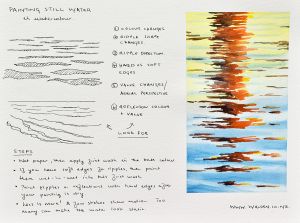 PAINTING STILL WATER
in watercolour
① COLOUR CHANGES
② RIPPLE SHAPE
CHANGES
③ RIPPLE DIRECTION
④ HARD VS SOFT
EDGES
⑤ VALUE CHANGES/
AERIAL PERSPECTIVE
⑥ REFLECTION COLOUR
+ VALUE
LOOK FOR
STEPS
• Wet paper, then apply first wash in the base colour
• If you have soft edges for ripples, then paint
them wet-in-wet into that first wash
• Paint ripples or reflections with hard edges after
your painting is dry
• Less is more! A few strokes show motion. Too
many can make the water look